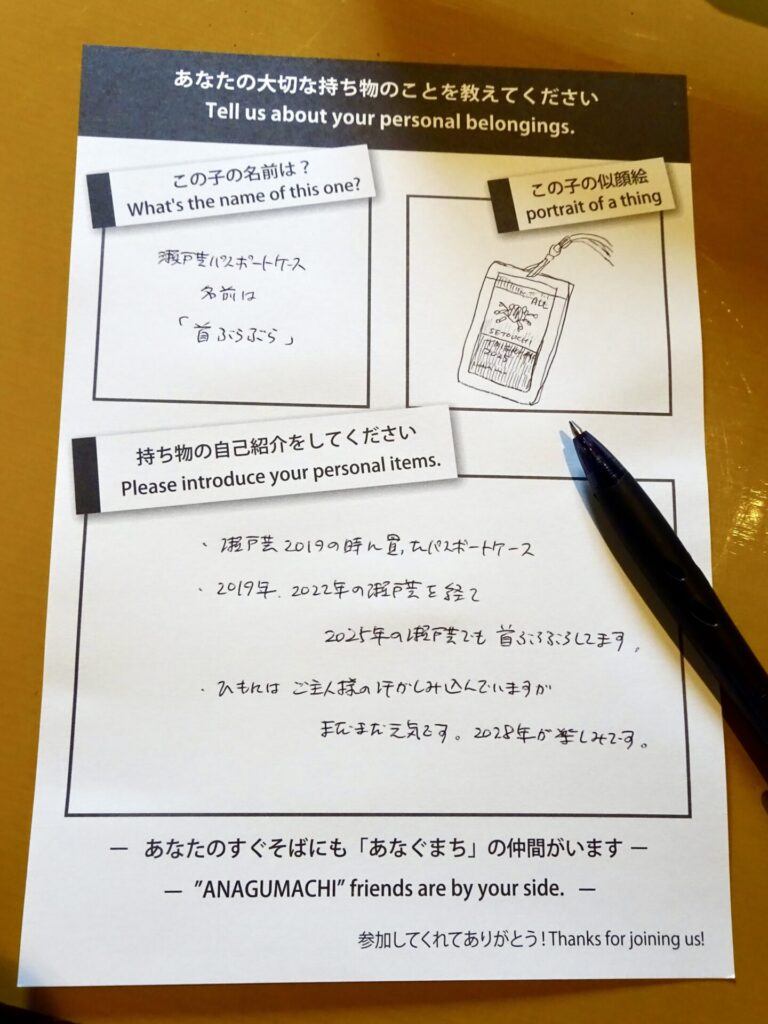 あなたの大切な持ち物のことを教えてください
Tell us about your personal belongings.
この子の名前は？
What's the name of this one?
瀬戸芸パスポートケース
名前は
「首ぶらぶら」
この子の似顔絵
portrait of a thing
ALL
SETOUCHI
2025
持ち物の自己紹介をしてください
Please introduce your personal items.
・瀬戸芸2019の時に買ったパスポートケース
・2019年、2022年の瀬戸芸を経て
2025年の瀬戸芸でも首ぶらぶらしてます。
・ひもにはご主人様の汗がしみ込んでいますが
まだまだ元気です。2028年が楽しみです。
— あなたのすぐそばにも「あなぐまち」の仲間がいます —
— ”ANAGUMACHI” friends are by your side. —
参加してくれてありがとう！Thanks for joining us!